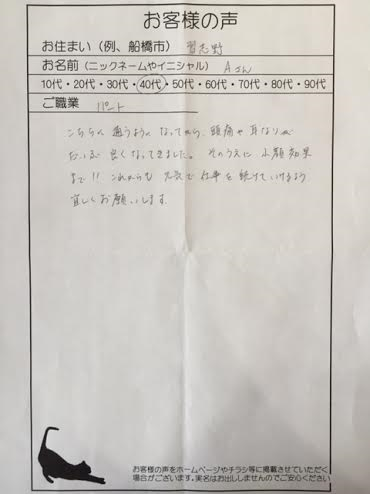 お客様の声
お住まい（例、船橋市） 習志野
お名前（ニックネームやイニシャル） Aさん
10代・20代・30代・40代・50代・60代・70代・80代・90代
ご職業 パート
こちらへ通うようになってから、頭痛や耳なりが
だいぶ良くなってきました。そのうえに小顔効果
まで!! これからも元気で仕事を続けていけるよう
宜しくお願いします。
お客様の声をホームページやチラシ等に掲載させていただく
場合がございます。実名はお出ししませんのでご安心ください